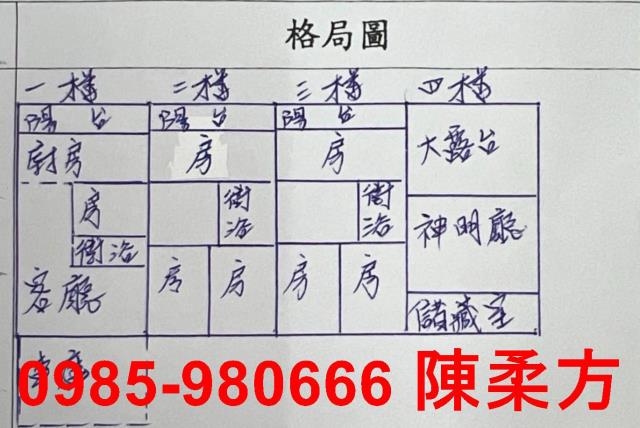 格局圖
一樓 二樓 三樓 四樓
陽台 陽台 陽台
廚房 房 房 大露台
房 衛浴 衛浴 神明廳
衛浴
客廳 房 房 房 房 儲藏室
0985-980666 陳柔方